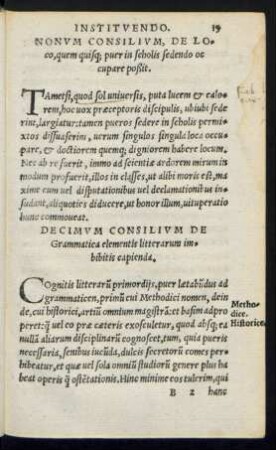 INSTITVENDO. 19
NONVM CONSILIVM, DE LO-
co, quem quisq; puer in scholis sedendo oc
cupare possit.
TAmetsi, quod sol uniuersis, puta lucem & ca-
lorem, hoc uox præceptoris discipulis, ubiubi sede
rint, largiatur: tamen pueros sedere in scholis permi-
xtos dissuaserim, uerum singulos singula loca occu-
pare, & doctiorem quemq; digniorem habere locum.
Nec ab re fuerit, immo ad scientiæ ardorem mirum in
modum profuerit, illos in classes, ut alibi moris est, ma
xime cum uel disputationibus uel declamationibus in-
sudant, aliquoties diducere, ut honor illum, uituperatio
hunc commoueat.
DECIMVM CONSILIVM DE
Grammatica elementis litterarum im-
bibitis capienda.
COgnitis litterarũ primordijs, puer lætabũdus ad
grammaticen, primũ cui Methodici nomen, dein
de, cui historici, artiũ omnium magistrã: et basim adpro
peret: q̃ uel eo præ cæteris exosculetur, quod absq; ea
nullã aliarum disciplinarũ cognoscet, tum, quia pueris
necessaria, senibus iucũda, dulcis secretorũ comes per-
hibeatur, et quæ uel sola omniũ studiorũ genere plus ha
beat operis q̃ ostẽtationis. Hinc minime eos tulerim, qui
Metho-
dice.
Historice.
B 2 hanc